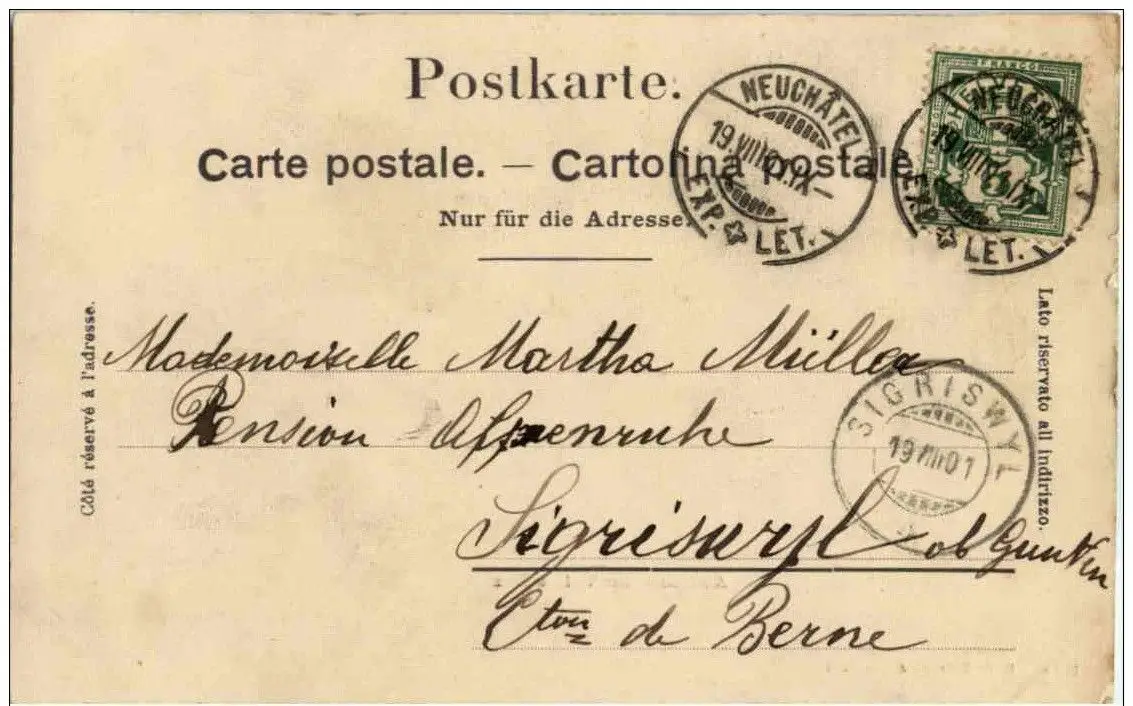 Postkarte.
Carte postale. — Cartolina postale.
Nur für die Adresse.
NEUCHÂTEL
19.VIII
IX—
EXP. LET.
FRANCO
NEUCHÂTEL
19.VIII
IX
EXP. LET.
Côté réservé à l'adresse.
Lato riservato all indirizzo.
Mademoiselle Martha Müller
Pension Alpenruhe
SIGRISWYL
19 VIII 01
Sigriswyl ob Gunten
Cton de Berne